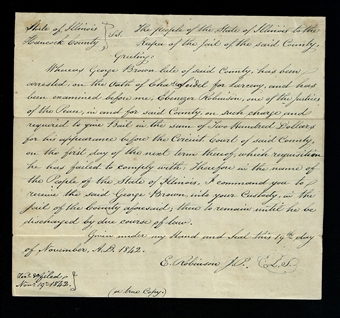 State of Illinois } The People of the State of Illinois to the
Hancock County } Sct. Keeper of the Jail of the said County.
Greeting:
Whereas George Brown late of said County, has been
arrested on the Oath of Chas. for Larceny, and has
been examined before me, Ebenezer Robinson, one of the Justices
of the Peace, in and for said County, on such charge and
required to give Bail in the sum of Two Hundred Dollars
for his appearance before the Circuit Court of said County
on the first day of the next term thereof, which requisition
he has failed to comply with; Therefore in the name of
the People of the State of Illinois, I command you to
receive the said George Brown, into your Custody, in the
jail of the County aforesaid, there to remain until he be
discharged by due course of law.
Given under my Hand and Seal this 19th day
of November, A.D. 1842.
E. Robinson J.P. L.S.
filed
Nov. 19th 1842.
(a true Copy)